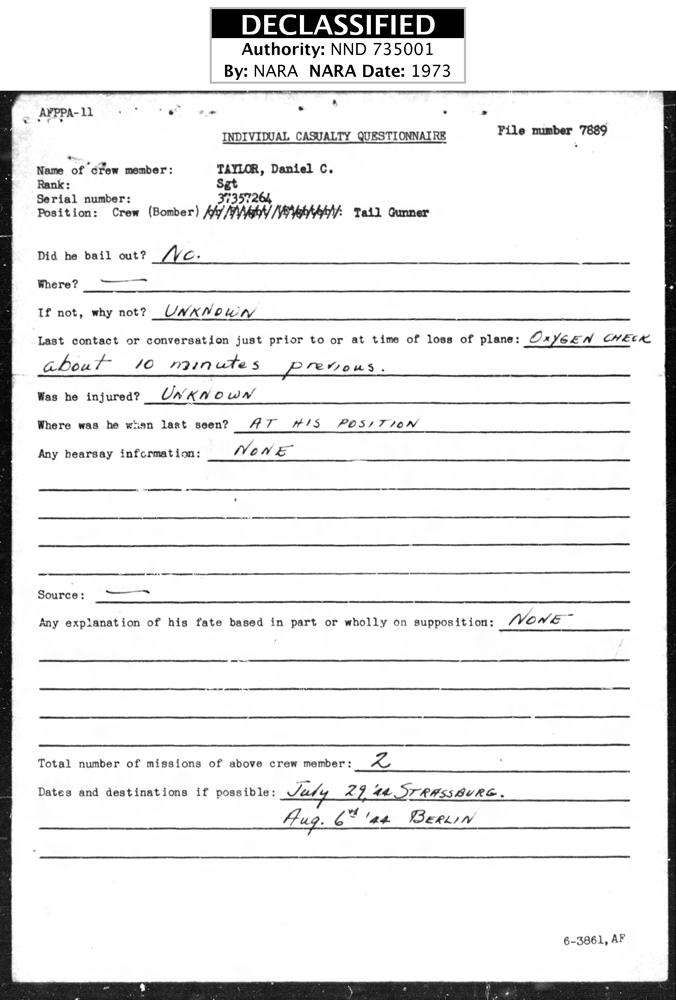 DECLASSIFIED
Authority: NND 735001
By: NARA NARA Date: 1973
AFPPA-11
INDIVIDUAL CASUALTY QUESTIONNAIRE
File number 7889
Name of crew member: TAYLOR, Daniel C.
Rank: Sgt
Serial number: 37357264
Position: Crew (Bomber) : Tail Gunner
Did he bail out? No.
Where? —
If not, why not? UNKNOWN
Last contact or conversation just prior to or at time of loss of plane: OXYGEN CHECK
about 10 minutes previous.
Was he injured? UNKNOWN
Where was he when last seen? AT HIS POSITION
Any hearsay information: NONE
Source: —
Any explanation of his fate based in part or wholly on supposition: NONE
Total number of missions of above crew member: 2
Dates and destinations if possible: July 29, '44 STRASSBURG.
Aug. 6 '44 BERLIN
6-3861, AF